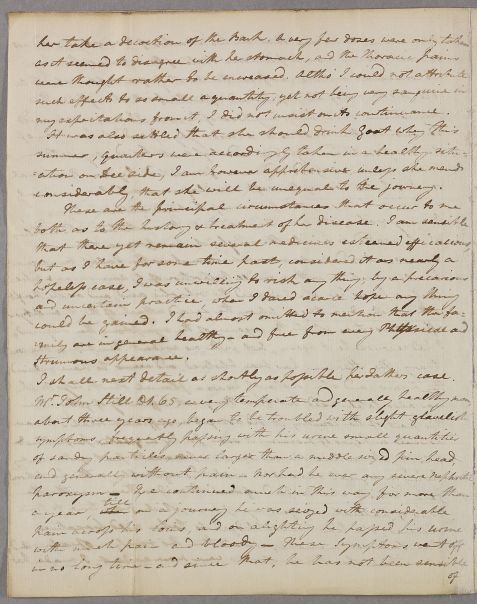 her take a decoction of the Bark. A very few doses were only taken
as it seemed to disagree with her stomach, and the Thoracic pains
were thought rather to be increased. Altho I could not attribute
such effects to so small a quantity, yet not being very sanguine in
my expectations from it, I did not insist on its continuance.
It was also settled that she should drink Goat Whey this
summer, Quarters were accordingly taken in a healthy situ-
-ation on Dee side, I am however apprehensive unless she mends
considerably that she will be unequal to the journey.
These are the principal circumstances that occur to me
both as to the history & treatment of her disease. I am sensible
that there yet remain several medicines esteemed efficacious,
but as I have for some time past, considered it as nearly a
hopeless case, I was unwilling to risk any thing, by a precarious
and uncertain practice, when I dared scarce hope any thing
could be gained. I had almost omitted to mention that the fa-
-mily are in general healthy - and free from every Phthisical and
Strumous appearance.
I shall next detail as shortly as possible her father's case.
Mr. John Still Æt. 65 a very temperate and generally healthy man,
about three years ago, began to be troubled with slight gravelish
symptoms, frequently passing with his urine small quantities
of sandy particles never larger than a middle sized pin head
and generally without pain - nor had he ever any severe Nephritic
paroxysm - He continued much in this way for more than
a year till on a journey he was seized with considerable
pain across his loins, and on alighting he passed his urine
with much pain and bloody - These symptoms went off
in no long time - and since that, he has not been sensible
of